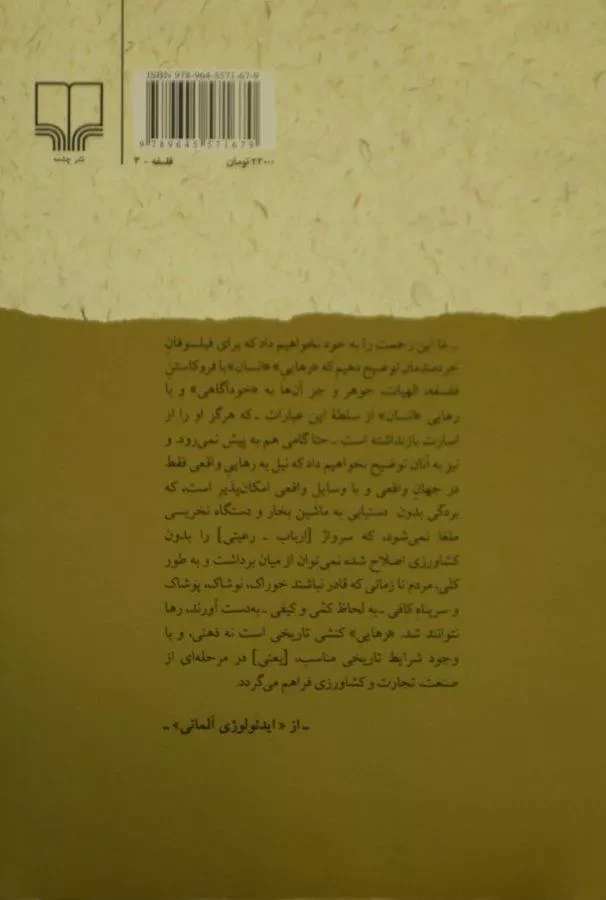 ISBN 978-964-5571-67-9
9 789645 571679
نشر چشمه
فلسفه - ۴
۲۴۰۰۰ تومان
ـ ما این زحمت را به خود نخواهیم داد که برای فیلسوفانِ
خردمندمان توضیح دهیم که «رهایی» «انسان» با فروکاستنِ
فلسفه، الهیات، جوهر و جز آن‌ها به «خودآگاهی» و با
رهایی «انسان» از سلطهٔ این عبارات ـ که هرگز او را در
اسارت بازنداشته است ـ حتا گامی هم به پیش نمی‌رود. و
نیز به آنان توضیح نخواهیم داد که نیل به رهاییِ واقعی فقط
در جهانِ واقعی و با وسایل واقعی امکان‌پذیر است، که
بردگی بدون دستیابی به ماشین بخار و دستگاه نخریسی
ملغا نمی‌شود، که سرواژ [ارباب ـ رعیتی] را بدون
کشاورزی اصلاح شده نمی‌توان از میان برداشت و به طور
کلی، مردم تا زمانی که قادر نباشند خوراک، نوشاک، پوشاک
و سرپناهِ کافی ـ به لحاظ کمّی و کیفی ـ به‌دست آورند، رها
نتوانند شد. «رهایی» کنشی تاریخی است نه ذهنی، و با
وجود شرایط تاریخی مناسب، [یعنی] در مرحله‌ای از
صنعت، تجارت و کشاورزی فراهم می‌گردد.
ـ از «ایدئولوژی آلمانی» ـ